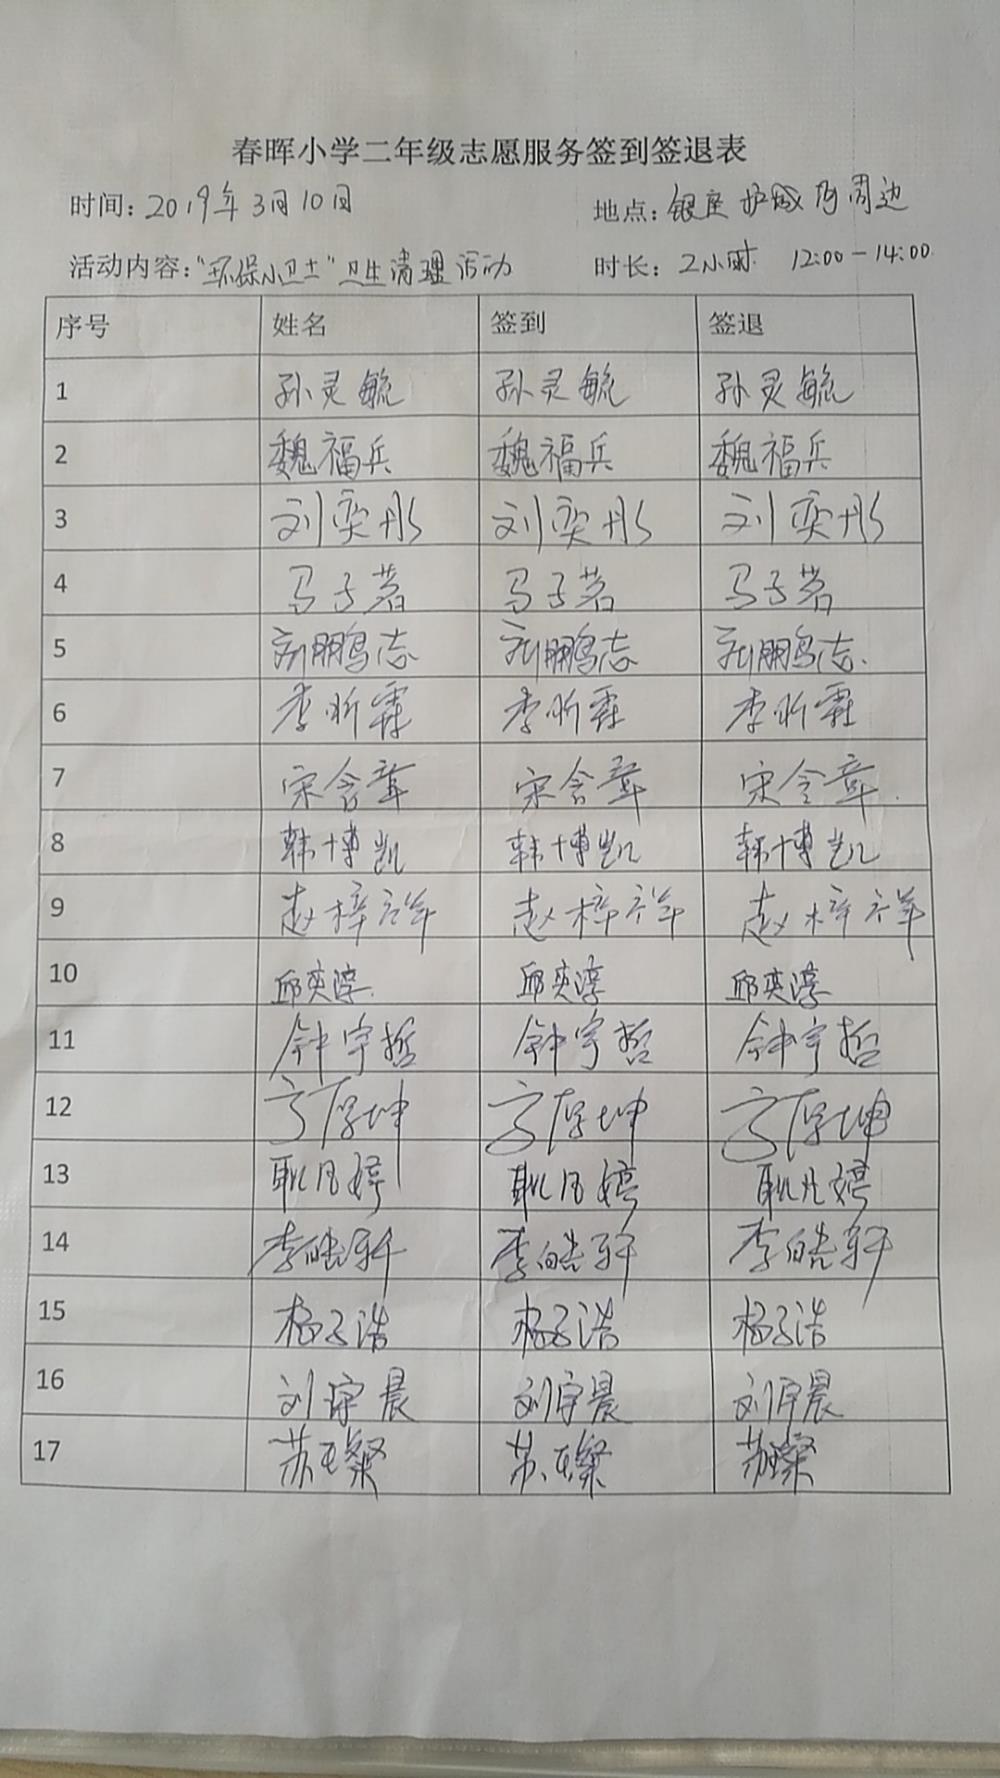 春晖小学二年级志愿服务签到签退表
时间：2019年3月10日 地点：银座护城河周边
活动内容：“环保小卫士”卫生清理活动 时长：2小时 12:00-14:00
序号 姓名 签到 签退
1 孙灵毓 孙灵毓 孙灵毓
2 魏福兵 魏福兵 魏福兵
3 刘奕彤 刘奕彤 刘奕彤
4 马子茗 马子茗 马子茗
5 刘鹏志 刘鹏志 刘鹏志
6 李昕霖 李昕霖 李昕霖
7 宋含章 宋含章 宋含章
8 韩博凯 韩博凯 韩博凯
9 赵梓祥 赵梓祥 赵梓祥
10 邱奕淳 邱奕淳 邱奕淳
11 钟宇哲 钟宇哲 钟宇哲
12 高厚坤 高厚坤 高厚坤
13 耿凡婷 耿凡婷 耿凡婷
14 李皓轩 李皓轩 李皓轩
15 杨子浩 杨子浩 杨子浩
16 刘宇晨 刘宇晨 刘宇晨
17 苏玉璨 苏玉璨 苏玉璨